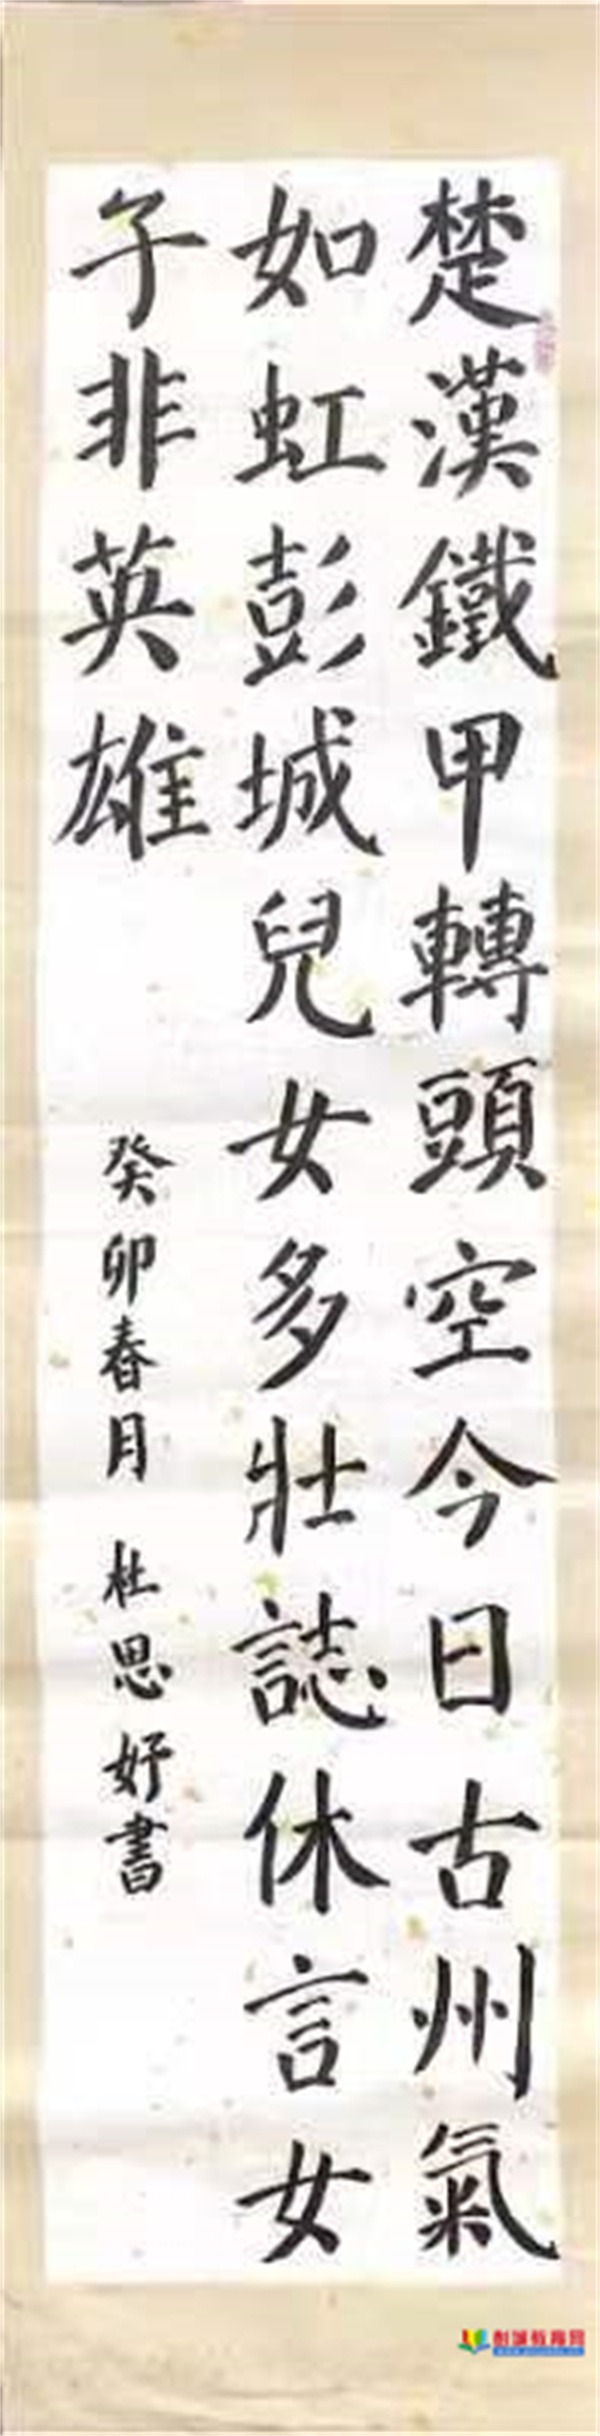 楚漢鐵甲轉頭空今日古州氣
如虹彭城兒女多壯誌休言女
子非英雄
癸卯春月 杜思妤書
彭城教育网